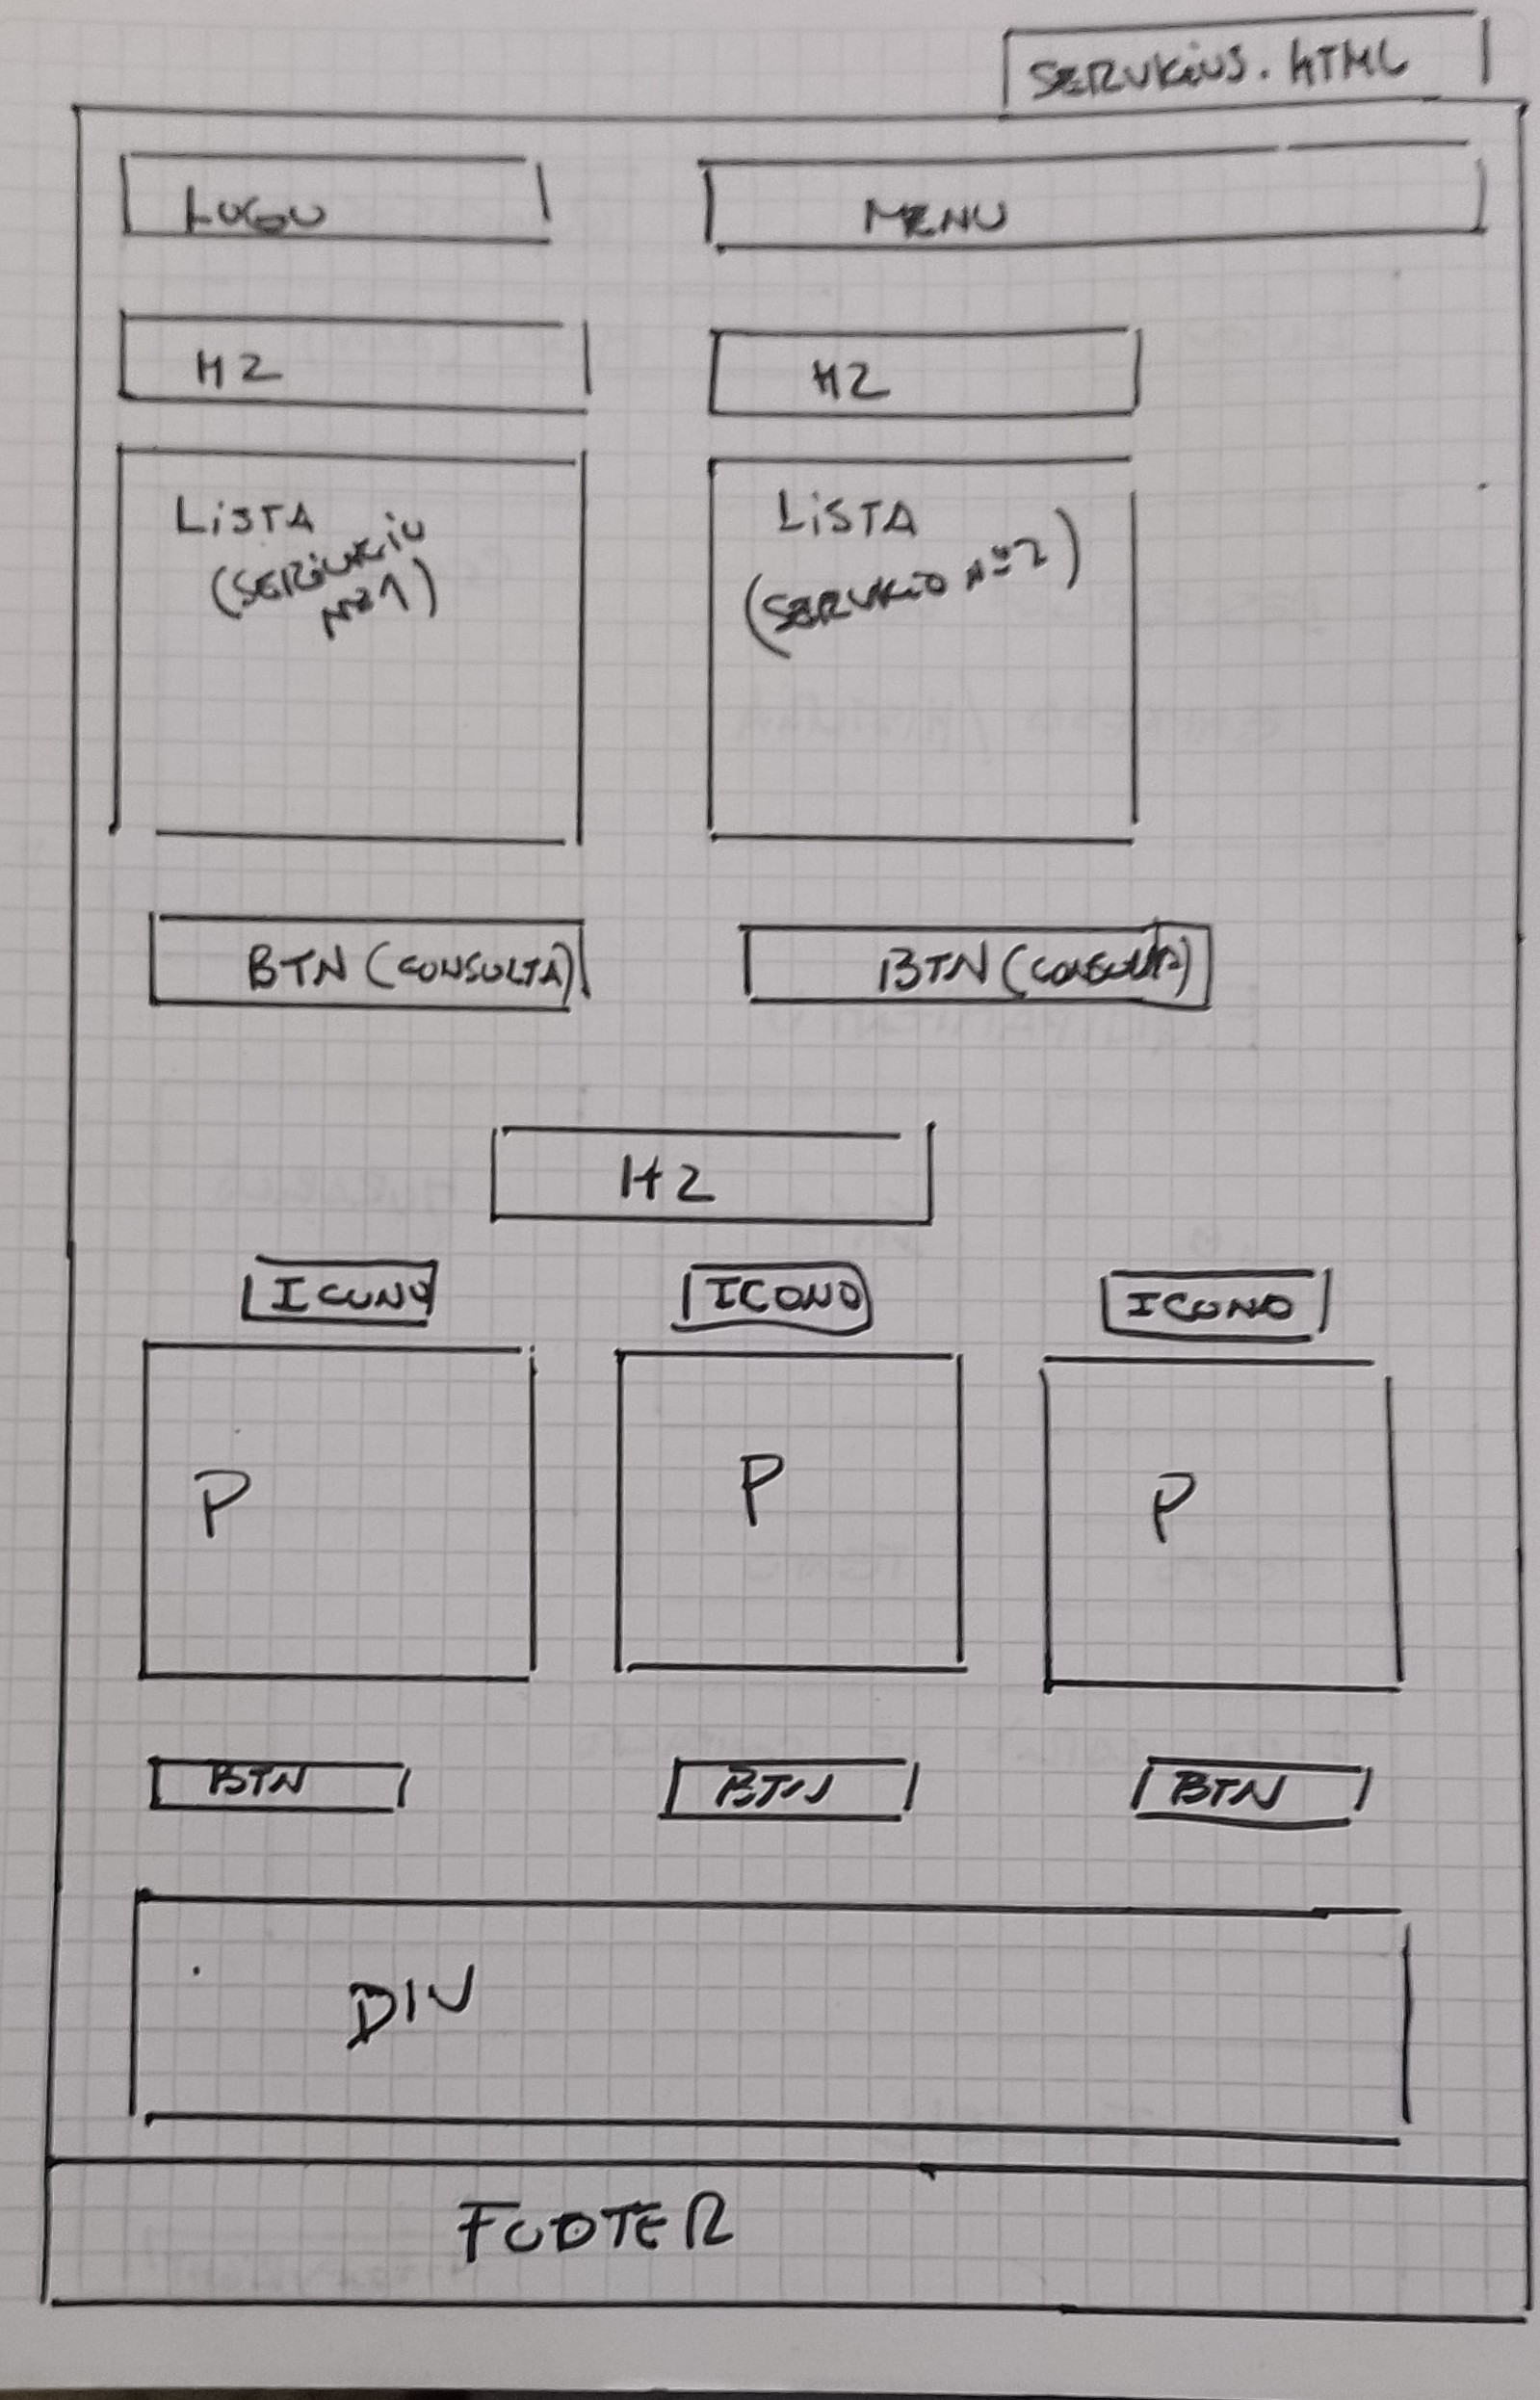 SERVICIOS.HTML
LOGO MENU
H2 H2
LISTA
(SERVICIO
Nº1)
LISTA
(SERVICIO Nº2)
BTN (CONSULTA) BTN (CONSULTA)
H2
ICONO ICONO ICONO
P P P
BTN BTN BTN
DIV
FOOTER